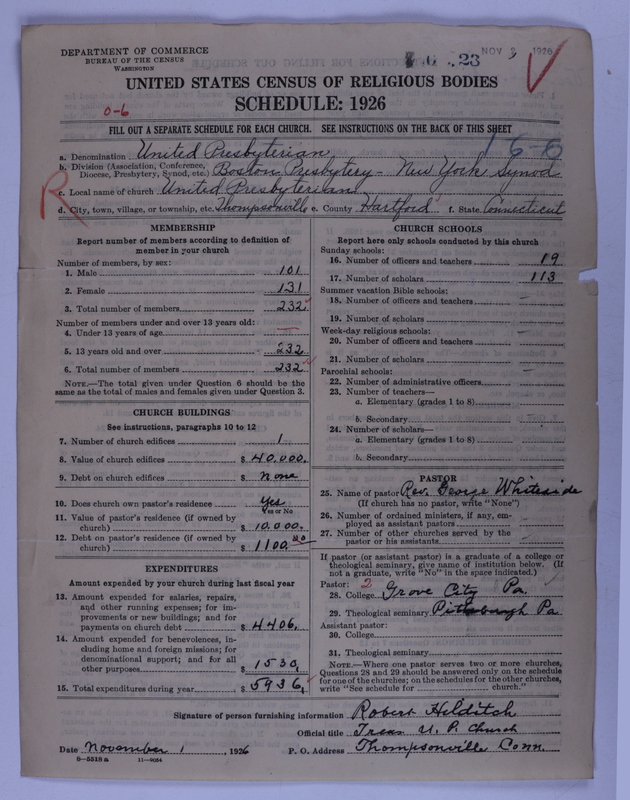 DEPARTMENT OF COMMERCE
BUREAU OF THE CENSUS
WASHINGTON
23
NOV 3 1926
UNITED STATES CENSUS OF RELIGIOUS BODIES
SCHEDULE: 1926
0-6
FILL OUT A SEPARATE SCHEDULE FOR EACH CHURCH. SEE INSTRUCTIONS ON THE BACK OF THIS SHEET
16-6
a. Denomination United Presbyterian
b. Division (Association, Conference, Diocese, Presbytery, Synod, etc.) Boston Presbytery - New York Synod
c. Local name of church United Presbyterian
R
d. City, town, village, or township, etc. Thompsonville e. County Hartford f. State Connecticut
MEMBERSHIP
Report number of members according to definition of
member in your church
Number of members, by sex:
1. Male 101
2. Female 131
3. Total number of members 232
Number of members under and over 13 years old:
4. Under 13 years of age —
5. 13 years old and over 232
6. Total number of members 232
NOTE.—The total given under Question 6 should be
same as the total of males and females given under Question 3.
CHURCH BUILDINGS
See instructions, paragraphs 10 to 12
7. Number of church edifices 1
8. Value of church edifices $ 40,000.
9. Debt on church edifices $ None
10. Does church own pastor's residence Yes
Yes or No
11. Value of pastor's residence (if owned by
church) $ 10,000.
12. Debt on pastor's residence (if owned by
church) $ 1100.00
EXPENDITURES
Amount expended by your church during last fiscal year
13. Amount expended for salaries, repairs,
and other running expenses; for im-
provements or new buildings; and for
payments on church debt $ 4406.
14. Amount expended for benevolences, in-
cluding home and foreign missions; for
denominational support; and for all
other purposes $ 1530.
15. Total expenditures during year $ 5936.
CHURCH SCHOOLS
Report here only schools conducted by this church
Sunday schools:
16. Number of officers and teachers 19
17. Number of scholars 113
Summer vacation Bible schools:
18. Number of officers and teachers —
19. Number of scholars
Week-day religious schools:
20. Number of officers and teachers
21. Number of scholars
Parochial schools:
22. Number of administrative officers
23. Number of teachers—
a. Elementary (grades 1 to 8)
b. Secondary
24. Number of scholars—
a. Elementary (grades 1 to 8)
b. Secondary
PASTOR
25. Name of pastor Rev. George Whiteside
(If church has no pastor, write "None")
26. Number of ordained ministers, if any, em-
ployed as assistant pastors
27. Number of other churches served by the
pastor or his assistants
If pastor (or assistant pastor) is a graduate of a college or
theological seminary, give name of institution below. (If
not a graduate, write "No" in the space indicated.)
Pastor: 2
28. College Grove City Pa.
29. Theological seminary Pittsburgh Pa
Assistant pastor:
30. College
31. Theological seminary
NOTE.—Where one pastor serves two or more churches,
Questions 28 and 29 should be answered only on the schedule
for one of the churches; on the schedules for the other churches,
write "See schedule for church."
Signature of person furnishing information Robert Hilditch
Official title Treas U. P. Church
Date November 1, 1926 P. O. Address Thompsonville Conn.
8—5518 a 11—9064